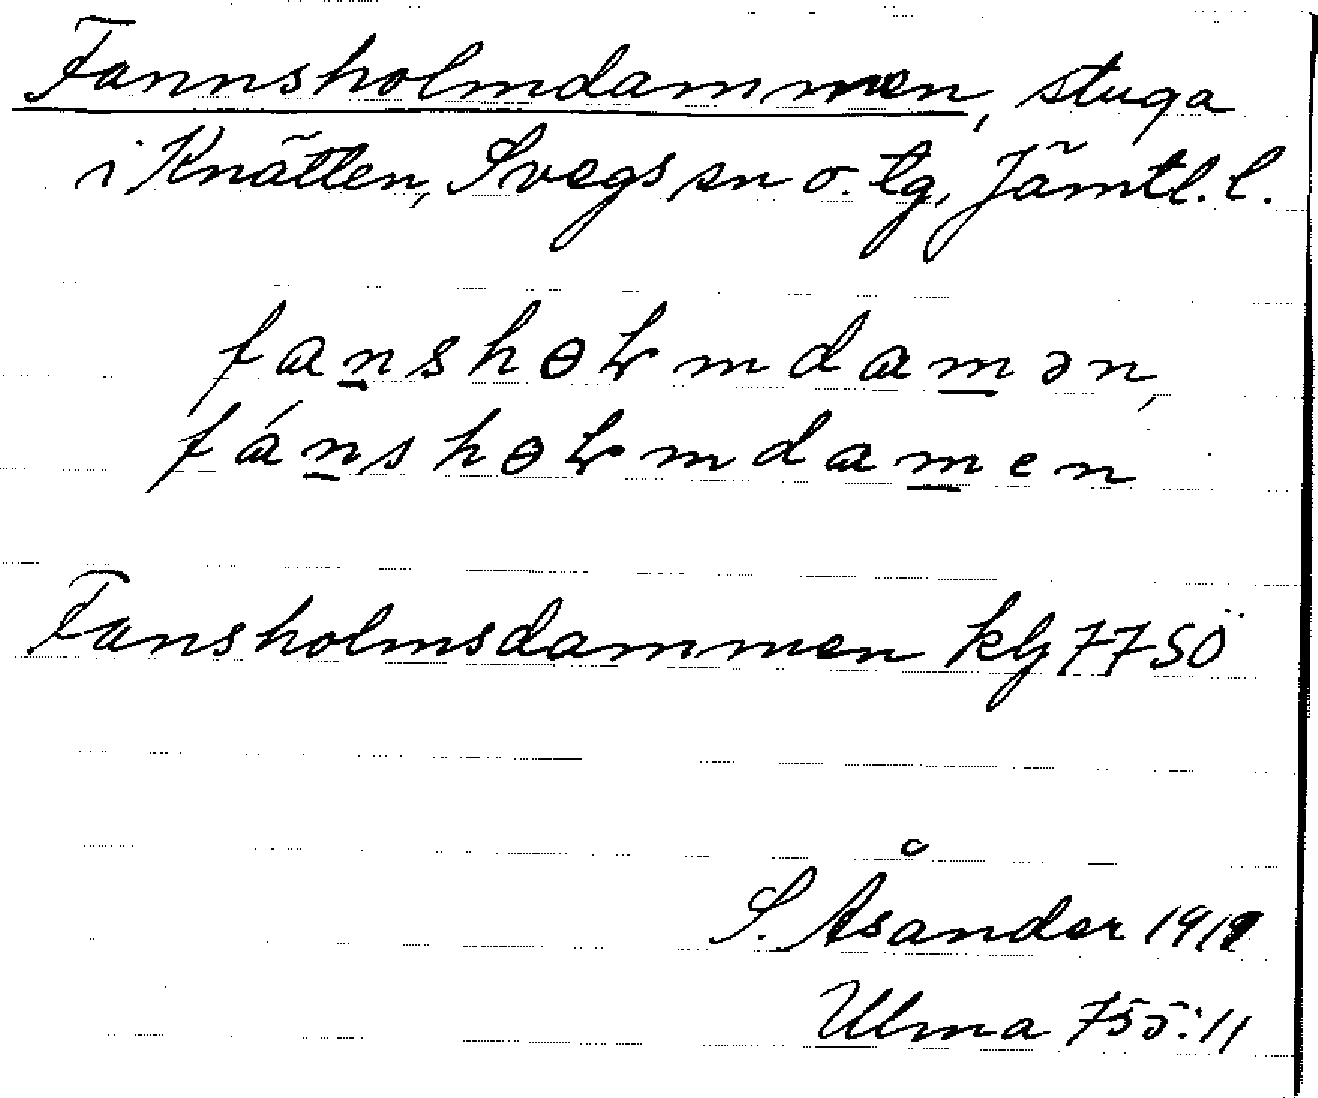 Fannsholmdammen, stuga
i Knätten, Svegs sn o. tg, Jämtl. l.
fan̲shɵɫmdam̲ən,
fán̲shɵɫmdam̲en
Fansholmsdammen kbl 77 SÖ
S. Åsander 1919
Ulma 755:11